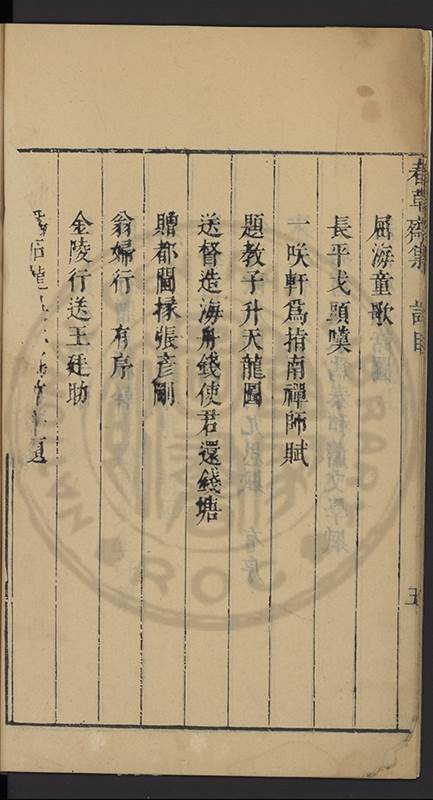 春草齋集 詩目 五
屈海童歌
長平戈頭嘆
一咲軒爲指南禪師賦
題教子升天龍圖
送督造海舟錢使君還錢塘
贈都閫掾張彥剛
翁婦行 有序
金陵行送王廷助